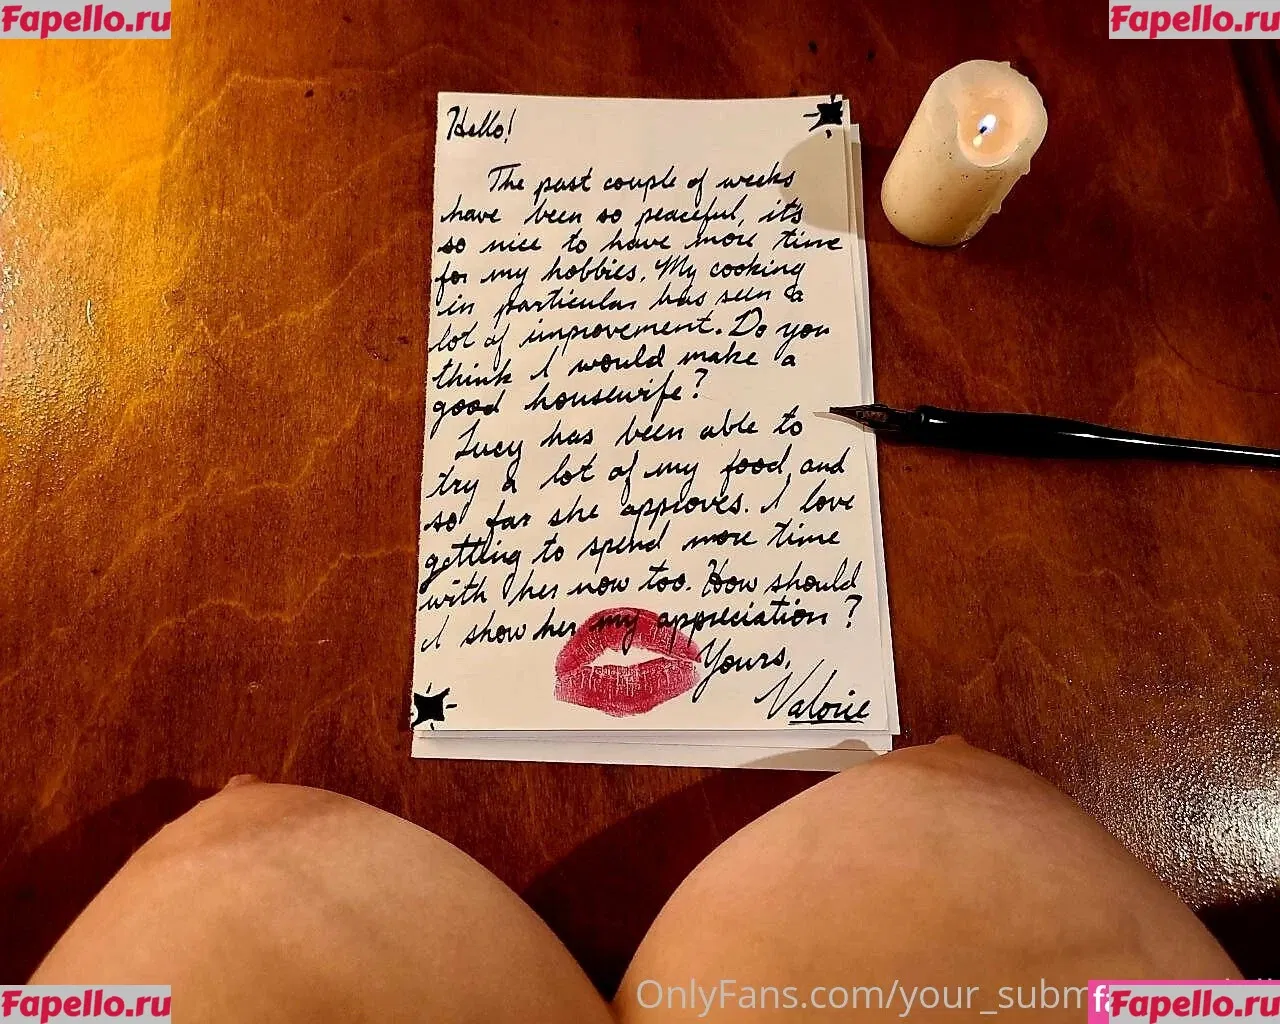 Fapello.ru
Fapello.ru
Hello!
The past couple of weeks
have been so peaceful, it's
so nice to have more time
for my hobbies. My cooking
in particular has seen a
lot of improvement. Do you
think I would make a
good housewife?
Lucy has been able to
try a lot of my food, and
so far she approves. I love
getting to spend more time
with her now too. How should
I show her my appreciation?
Yours,
Valorie
OnlyFans.com/your_subm
Fapello.ru
Fapello.ru